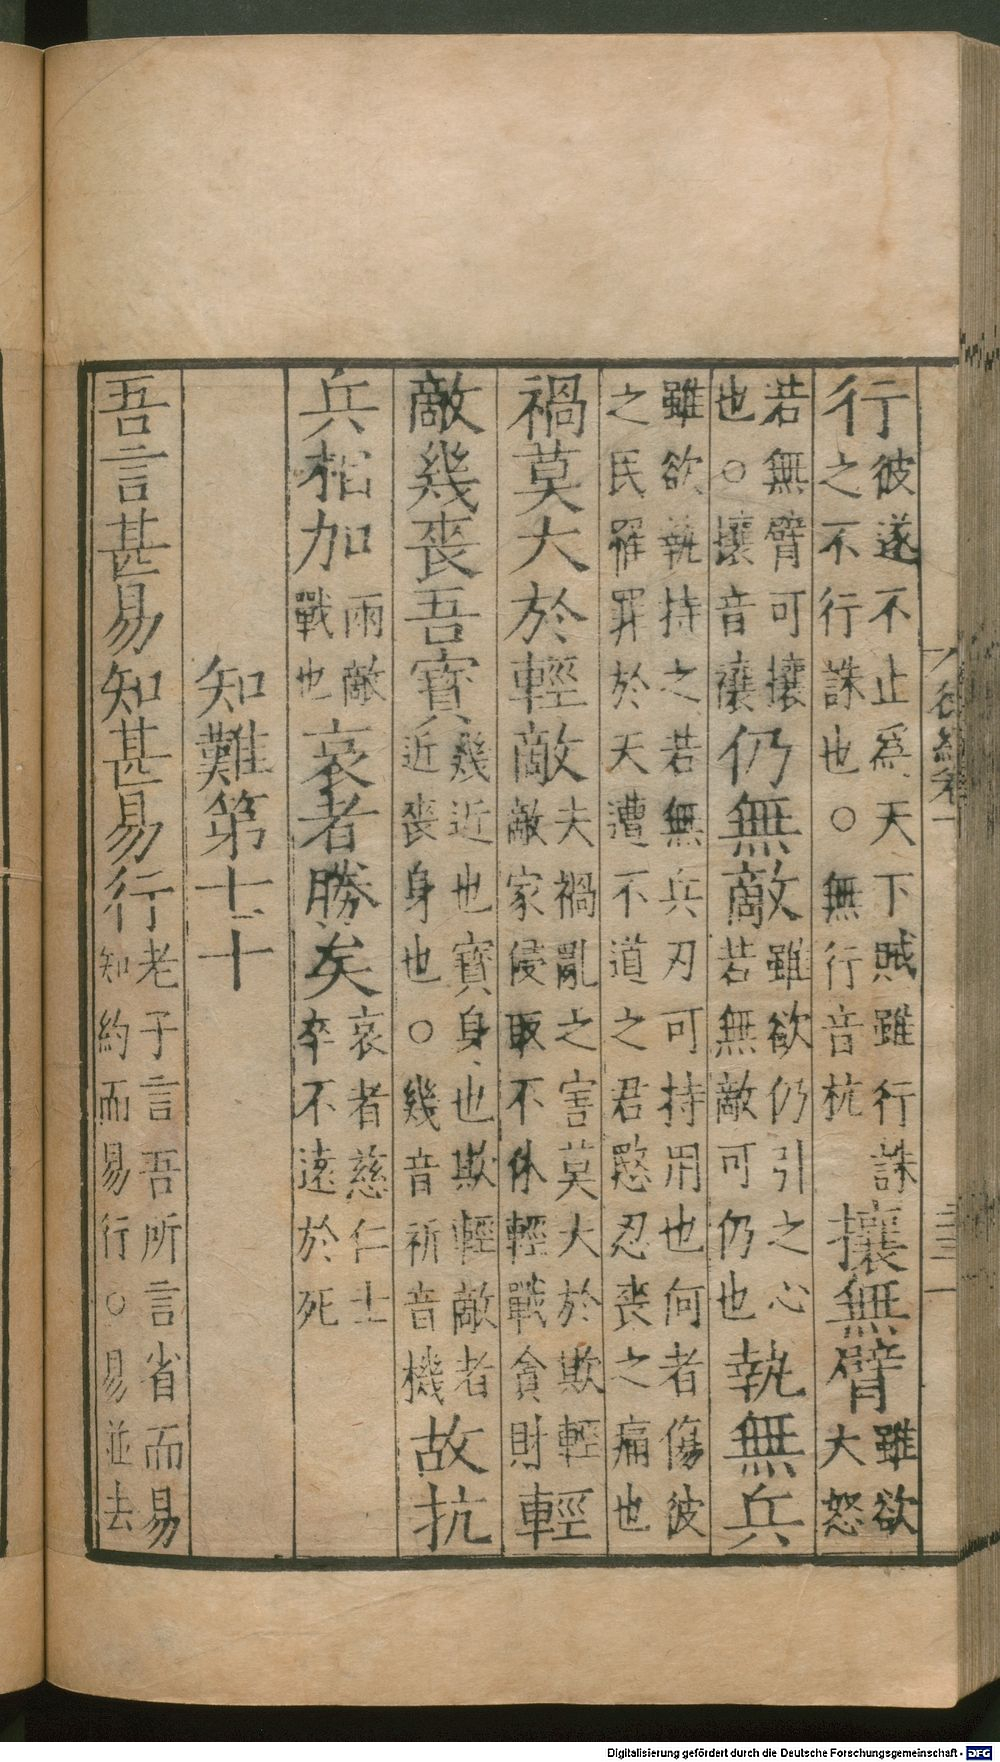 行彼遂不止爲天下賊雖行誅之不行誅也○無行音杭攘無臂雖欲大怒
若無臂可攘也○攘音禳仍無敵雖欲仍引之心若無敵可仍也執無兵
雖欲執持之若無兵刃可持用也何者傷彼之民罹罪於天遭不道之君愍忍喪之痛也
禍莫大於輕敵夫禍亂之害莫大於欺輕敵家侵取不休輕戰貪財輕
敵幾喪吾寶幾近也寶身也欺輕敵者近喪身也○幾音祈音機故抗
兵相加兩敵戰也哀者勝矣哀者慈仁士卒不遠於死
知難第七十
吾言甚易知甚易行老子言吾所言省而易知約而易行○易並去
德經卷
三三
Digitalisierung gefördert durch die Deutsche Forschungsgemeinschaft - DFG